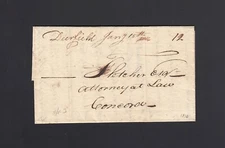 Deerfield Jany 10th 12
Fletcher Esqr
Attorney at Law
Concord